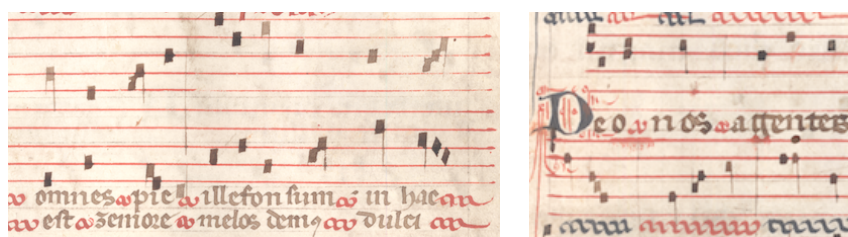 omnes pie illefonsum in hac
est zemore melos demꝰ dulci
Deo nos agentes